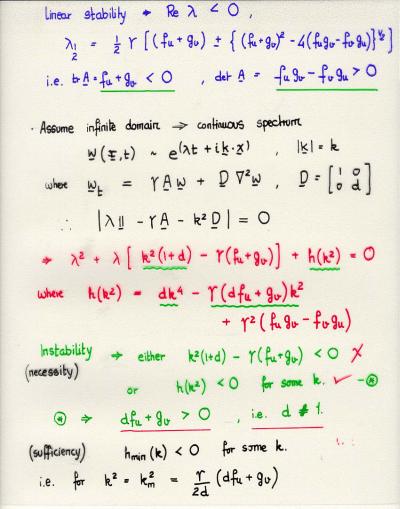 Linear stability ⇒ Re λ < 0 ,
λ₁,₂ = ½ γ [(fu+gv) ± {(fu+gv)² - 4(fugv-fvgu)}^½]
i.e. tr A = fu+gv < 0 , det A = fugv - fvgu > 0
· Assume infinite domain ⇒ continuous spectrum
w(x,t) ~ e^(λt + ik·x) , |k| = k
where w_t = γAw + D∇²w , D = [1 0 0 d]
∴ |λI - γA - k²D| = 0
⇒ λ² + λ[k²(1+d) - γ(fu+gv)] + h(k²) = 0
where h(k²) = dk⁴ - γ(dfu+gv)k²
+ γ²(fugv - fvgu)
Instability ⇒ either k²(1+d) - γ(fu+gv) < 0 ✗
(necessity) or h(k²) < 0 for some k. ✓ - ⊛
⊛ ⇒ dfu + gv > 0 , i.e. d ≠ 1.
(sufficiency) hmin(k) < 0 for some k.
i.e. for k² = k²m = γ/2d (dfu + gv)